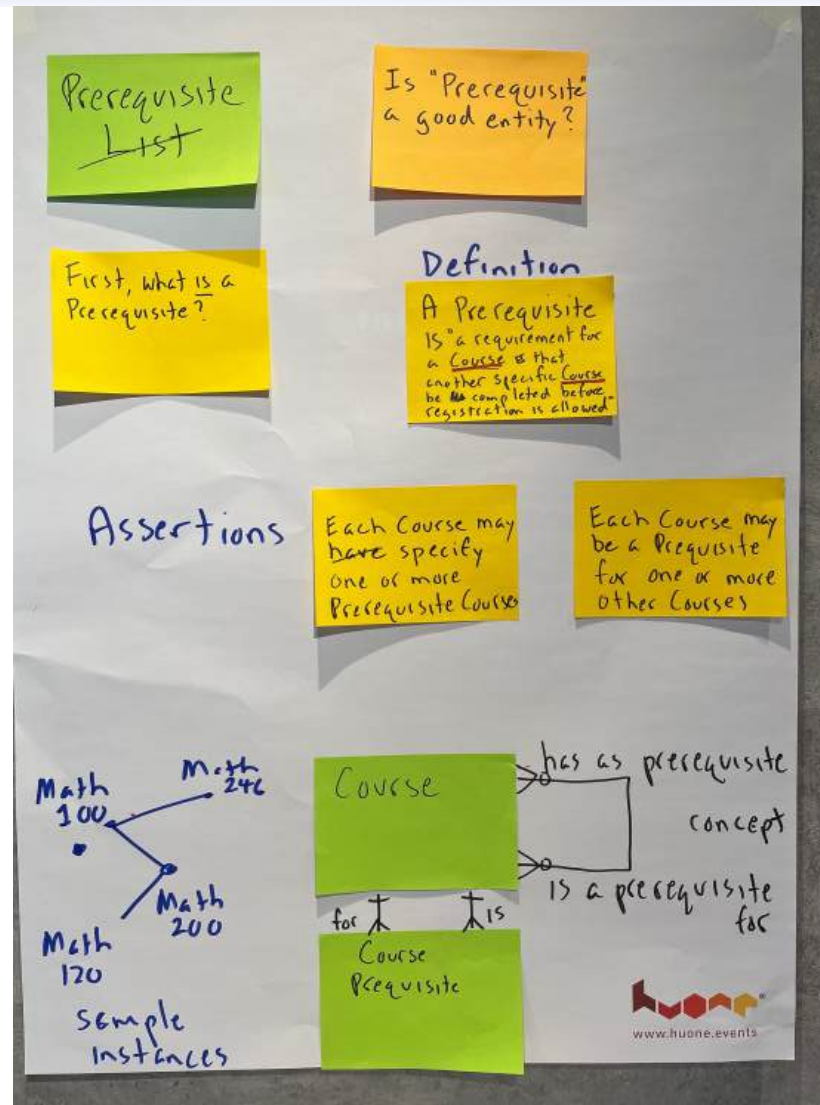 Prerequisite
List
Is "Prerequisite"
a good entity?
First, what is a
Prerequisite?
Definition
A Prerequisite
is "a requirement for
a Course that
another specific Course
be completed before
registration is allowed"
Assertions
Each Course may
have specify
one or more
Prerequisite Courses
Each Course may
be a Prequisite
for one or more
other Courses
Math
100
Math
246
Math
200
Math
120
Sample
instances
Course
has as prerequisite
concept
is a prerequisite
for
for
is
Course
Prequisite
huone
www.huone.events